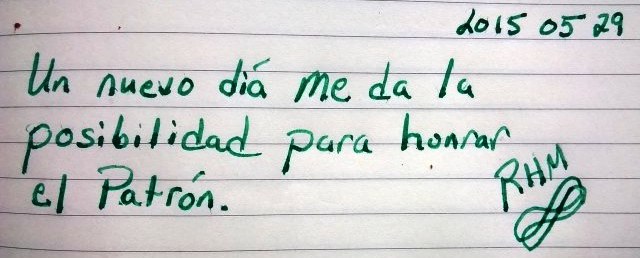 2015 05 29
Un nuevo día me da la
posibilidad para honrar
el Patrón.
RHM